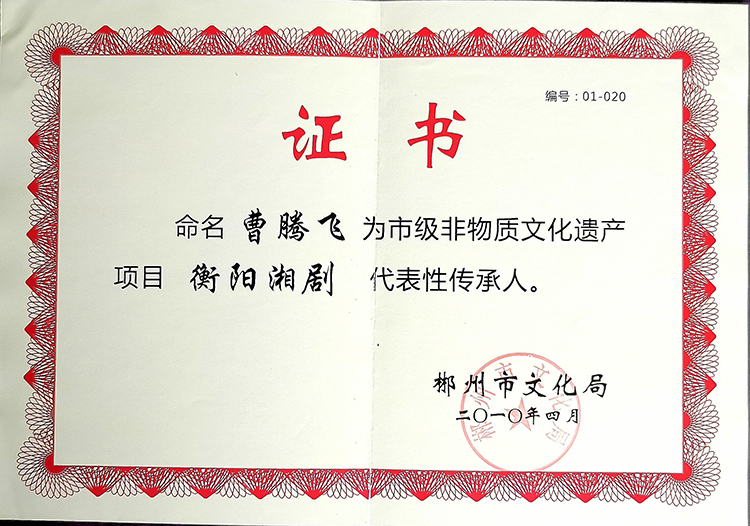 编号：01-020
证书
命名 曹腾飞 为市级非物质文化遗产
项目 衡阳湘剧 代表性传承人。
郴州市文化局
二〇一〇年四月
郴州市文化局